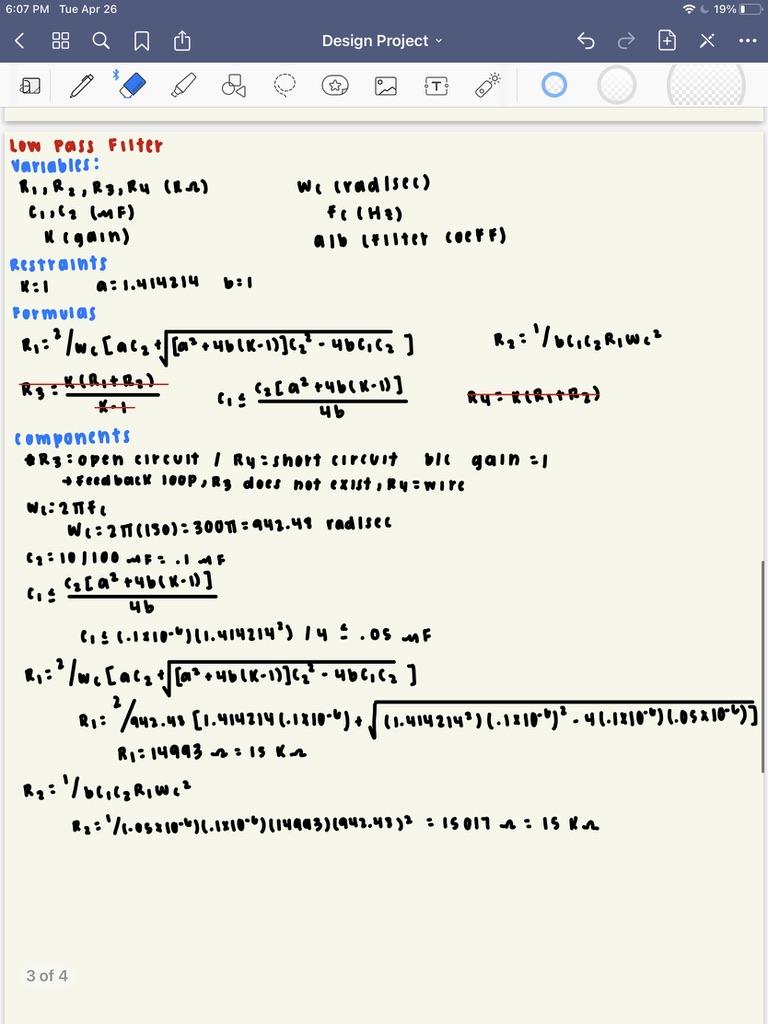 6:07 PM Tue Apr 26 19%
Design Project
Low Pass Filter
Variables:
R₁, R₂, R₃, R4 (KΩ) Wc (rad/sec)
C₁, C₂ (MF) fc (Hz)
K (gain) a/b (filter coeff)
Restraints
K=1 a=1.414214 b=1
Formulas
R₁ = 2/Wc [aC₂ + √[a² + 4b(K-1)]C₂² - 4bC₁C₂ ] R₂ = 1/bC₁C₂R₁Wc²
R₃ = K(R₁+R₂)/K-1 C₁ ≤ C₂[a² + 4b(K-1)]/4b R4 = K(R₁+R₂)
Components
*R₃ = open circuit / R4 = short circuit b/c gain = 1
→ Feedback loop, R₃ does not exist, R4 = wire
Wc = 2πfc
Wc = 2π(150) = 300π = 942.48 rad/sec
C₂ = 10/100 MF = .1 MF
C₁ ≤ C₂[a² + 4b(K-1)]/4b
C₁ ≤ (.1x10⁻⁶)(1.414214²) / 4 ≤ .05 MF
R₁ = 2/Wc [aC₂ + √[a² + 4b(K-1)]C₂² - 4bC₁C₂ ]
R₁ = 2/942.48 [1.414214(.1x10⁻⁶) + √(1.414214²)(.1x10⁻⁶)² - 4(.1x10⁻⁶)(.05x10⁻⁶)]
R₁ = 14993 Ω = 15 KΩ
R₂ = 1/bC₁C₂R₁Wc²
R₂ = 1/(.05x10⁻⁶)(.1x10⁻⁶)(14993)(942.48)² = 15017 Ω = 15 KΩ
3 of 4